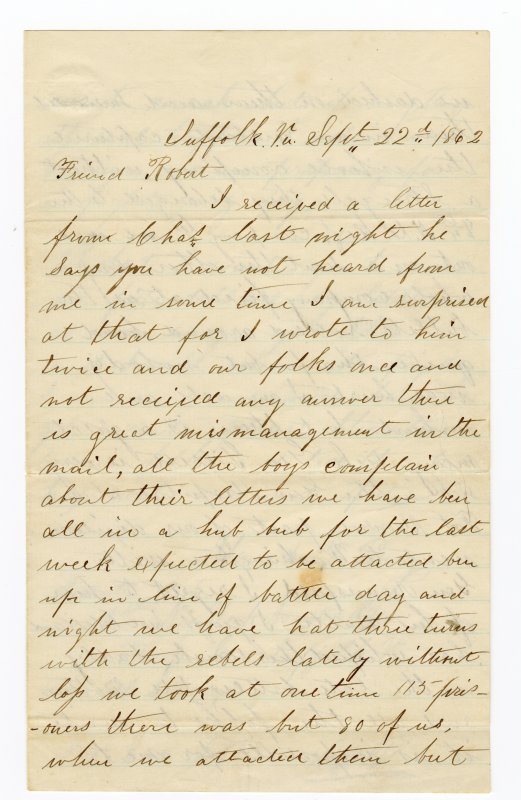 Suffolk. Va. Sept. 22d. 1862
Friend Robert
I received a letter
from Chas. last night he
says you have not heard from
me in some time I am surprised
at that for I wrote to him
twice and our folks once and
not received any answer there
is great mismanagement in the
mail, all the boys complain
about their letters we have ben
all in a hub bub for the last
week expected to be attacted ben
up in line of battle day and
night we have hat three turns
with the rebels lately without
loss we took at one time 115 pris-
-oners there was but 80 of us,
when we attacted them but